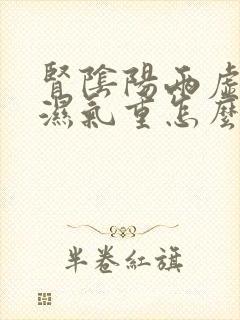 腎陰陽兩虛
濕氣重怎麼
半卷紅旗